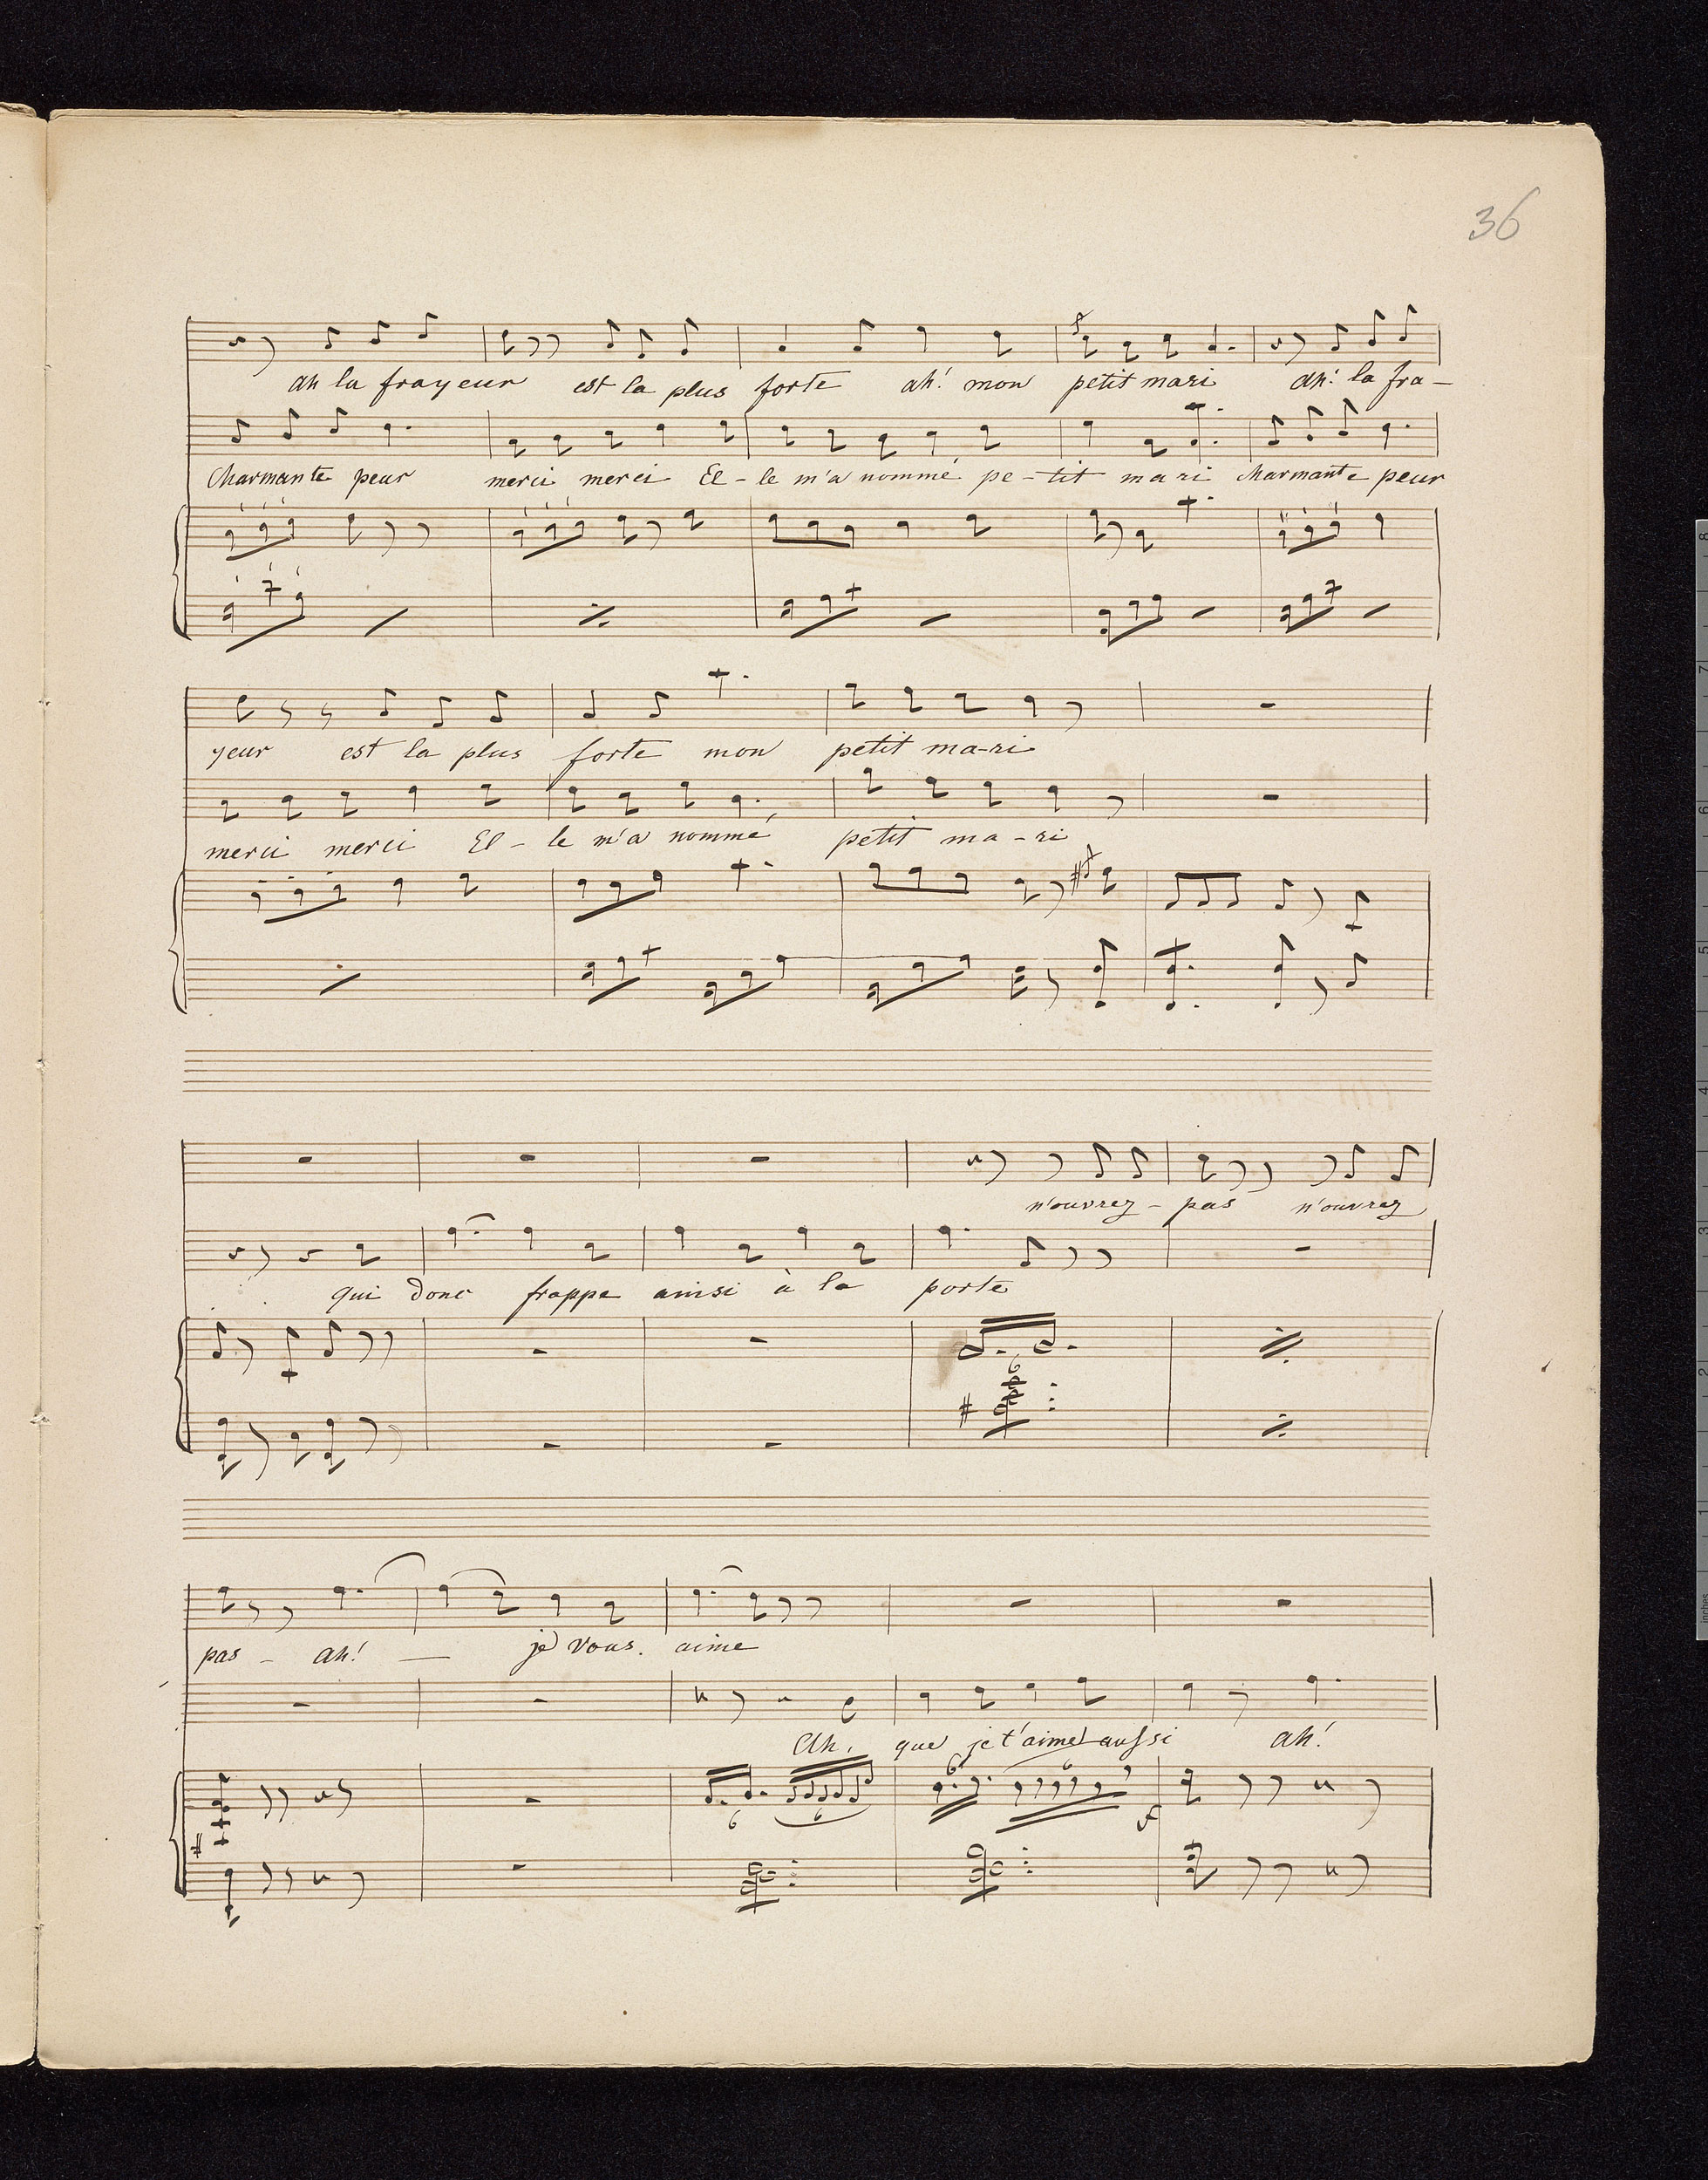 36
ah la frayeur est la plus forte ah! mon petit mari ah! la fra-
Charmante peur merci merci El-le m'a nommé pe-tit mari charmante peur
yeur est la plus forte mon petit ma-ri
merci merci El-le m'a nommé petit ma-ri
n'ouvrez-pas n'ouvrez
qui donc frappe ainsi à la porte
6
pas - ah! — je vous. aime
Ah, que je t'aime aussi ah!
6 6 6 6 f
8
7
6
5
4
3
2
1
inches